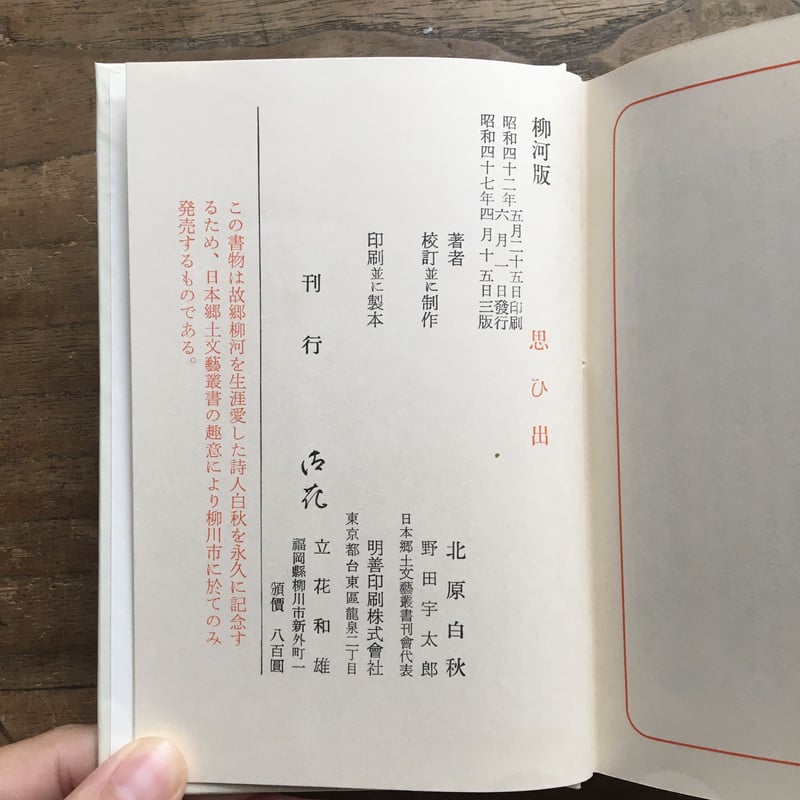 柳河版
思ひ出
昭和四十二年五月二十五日印刷
昭和四十二年六月一日發行
昭和四十七年四月十五日三版
著者 北原白秋
校訂並に制作 野田宇太郎
日本郷土文藝叢書刊會代表
印刷並に製本 明善印刷株式會社
東京都台東區龍泉二丁目
刊行 御花 立花和雄
福岡縣柳川市新外町一
頒價 八百圓
この書物は故郷柳河を生涯愛した詩人白秋を永久に記念す
るため、日本郷土文藝叢書の趣意により柳川市に於てのみ
発売するものである。